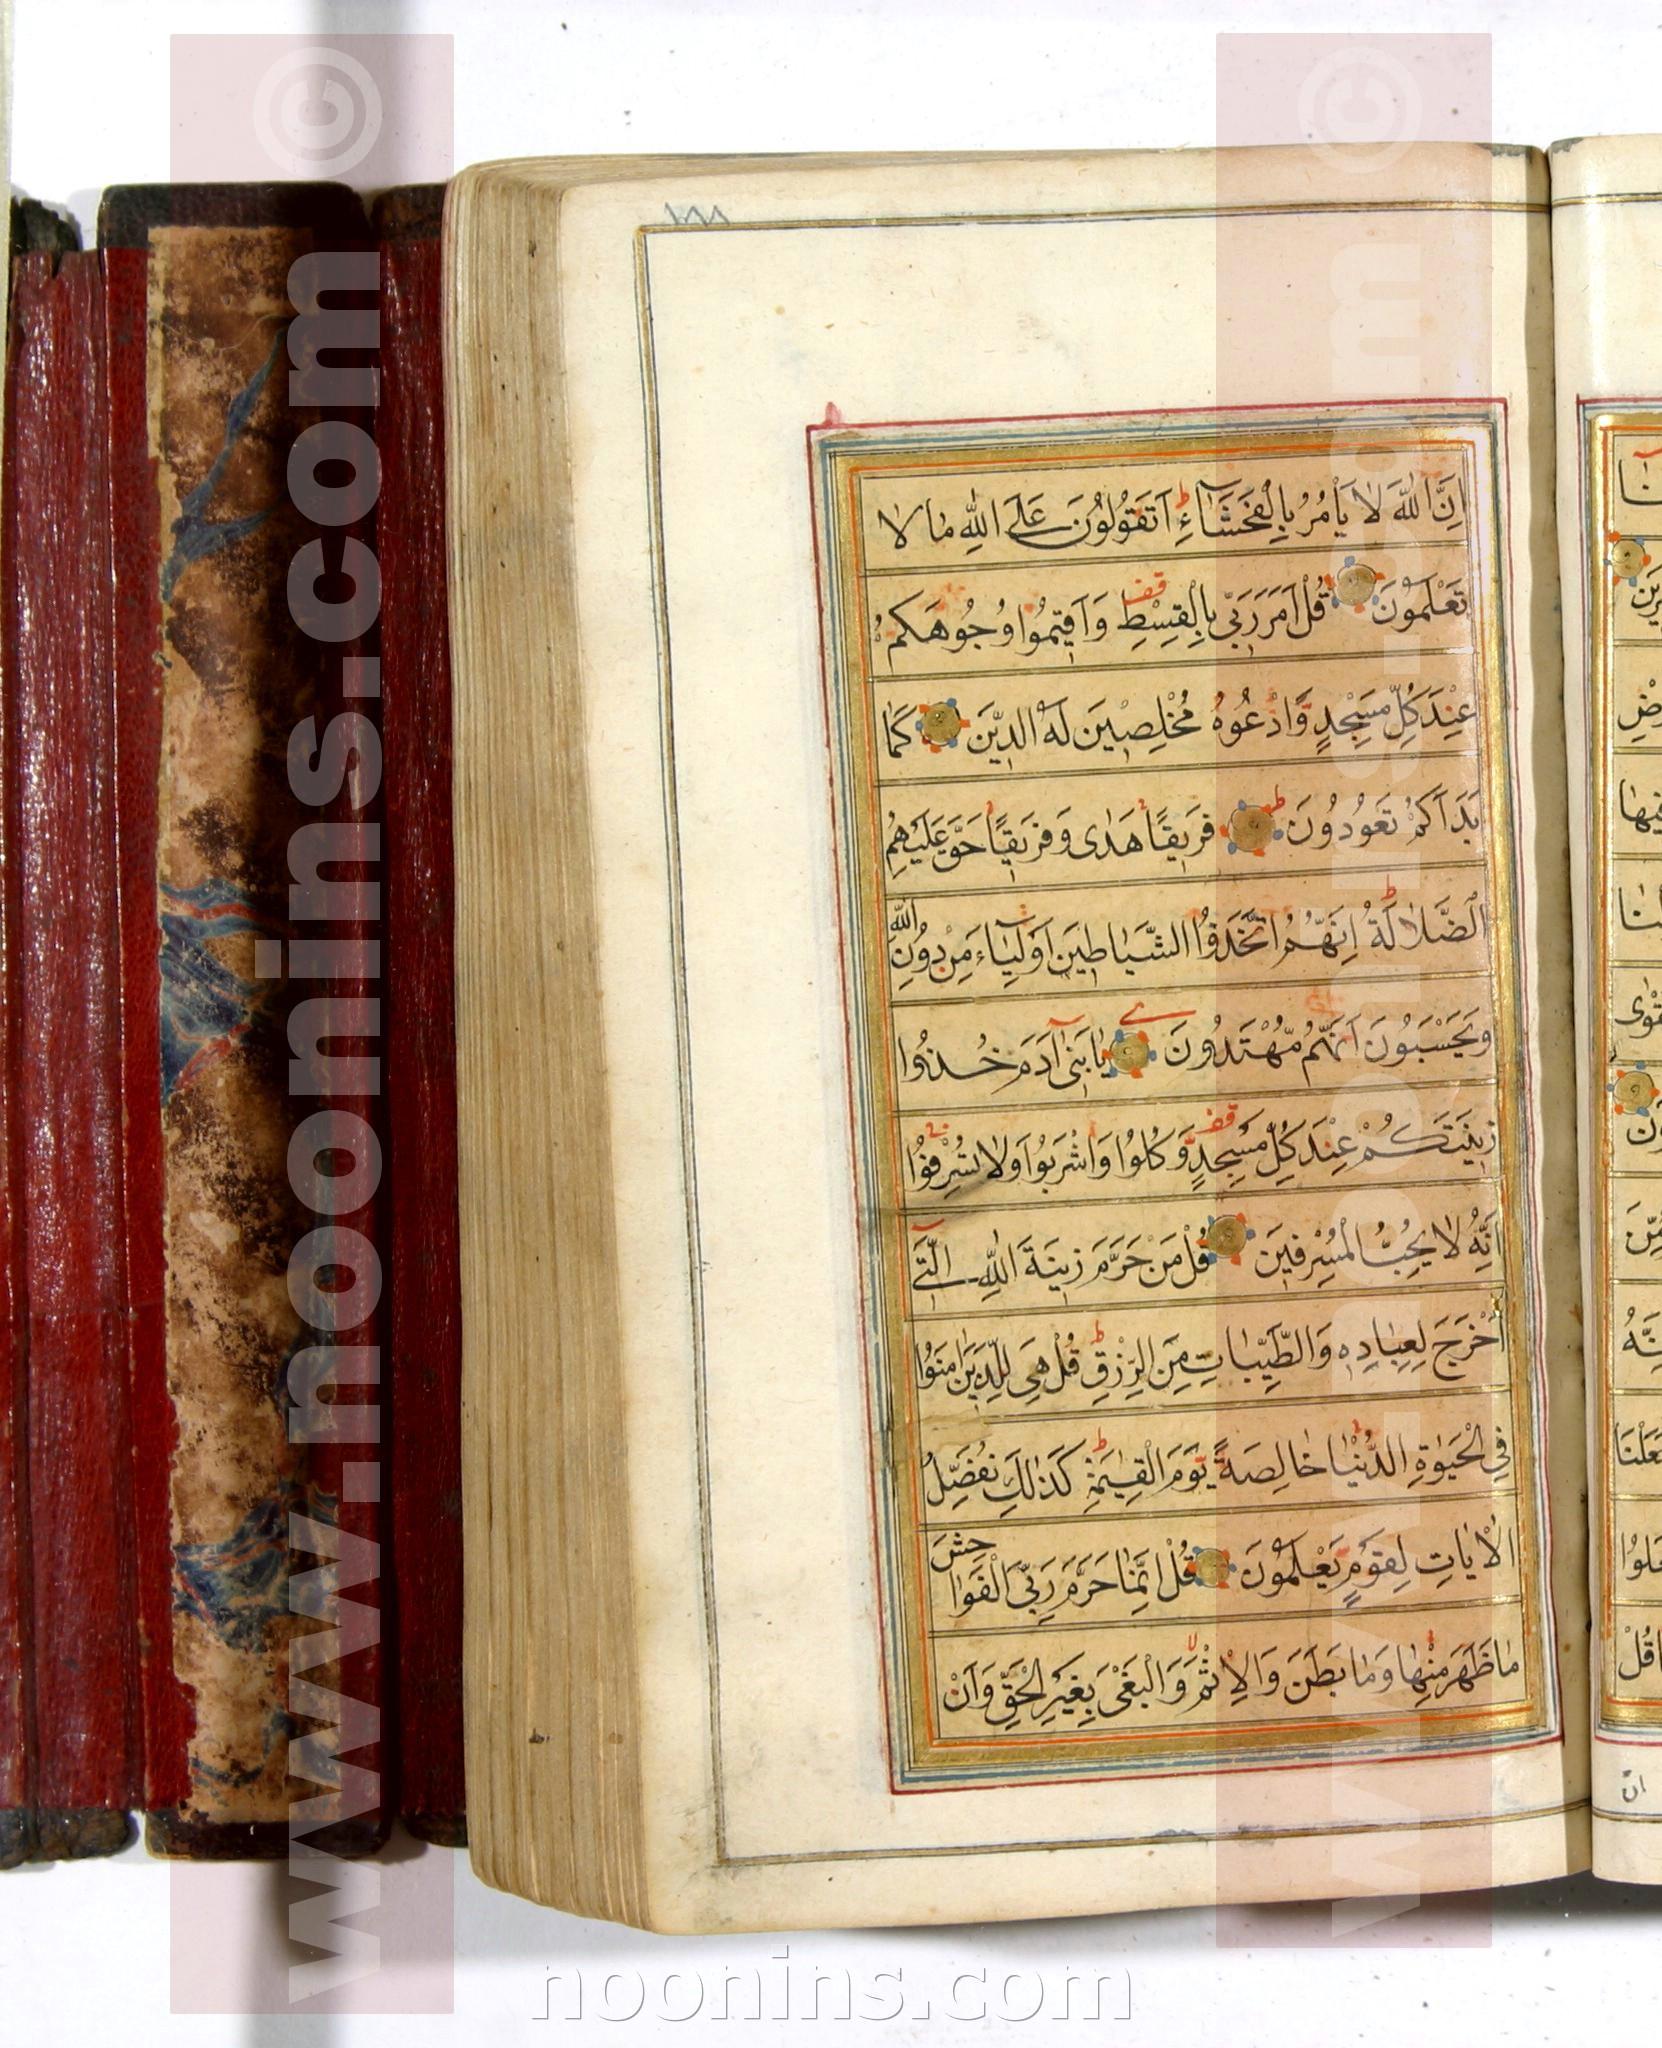 إِنَّ اللّٰهَ لَا يَأْمُرُ بِالْفَحْشَآءِ أَتَقُولُونَ عَلَى اللّٰهِ مَا لَا
تَعْلَمُونَ قُلْ أَمَرَ رَبِّي بِالْقِسْطِ وَأَقِيمُوا وُجُوهَكُمْ
عِنْدَ كُلِّ مَسْجِدٍ وَّادْعُوهُ مُخْلِصِينَ لَهُ الدِّينَ كَمَا
بَدَأَكُمْ تَعُودُونَ فَرِيقًا هَدٰى وَفَرِيقًا حَقَّ عَلَيْهِمُ
الضَّلَالَةُ إِنَّهُمُ اتَّخَذُوا الشَّيَاطِينَ أَوْلِيَآءَ مِنْ دُونِ اللّٰهِ
وَيَحْسَبُونَ أَنَّهُمْ مُّهْتَدُونَ يَا بَنِي آدَمَ خُذُوا
زِينَتَكُمْ عِنْدَ كُلِّ مَسْجِدٍ وَّكُلُوا وَاشْرَبُوا وَلَا تُسْرِفُوا
إِنَّهُ لَا يُحِبُّ الْمُسْرِفِينَ قُلْ مَنْ حَرَّمَ زِينَةَ اللّٰهِ الَّتِي
أَخْرَجَ لِعِبَادِهِ وَالطَّيِّبَاتِ مِنَ الرِّزْقِ قُلْ هِيَ لِلَّذِينَ اٰمَنُوا
فِي الْحَيٰوةِ الدُّنْيَا خَالِصَةً يَّوْمَ الْقِيٰمَةِ كَذٰلِكَ نُفَصِّلُ
الْاٰيَاتِ لِقَوْمٍ يَّعْلَمُونَ قُلْ إِنَّمَا حَرَّمَ رَبِّيَ الْفَوَاحِشَ
مَا ظَهَرَ مِنْهَا وَمَا بَطَنَ وَالْإِثْمَ وَالْبَغْيَ بِغَيْرِ الْحَقِّ وَأَنْ
ان
www.noonins.com ©
www.noonins.com ©
noonins.com